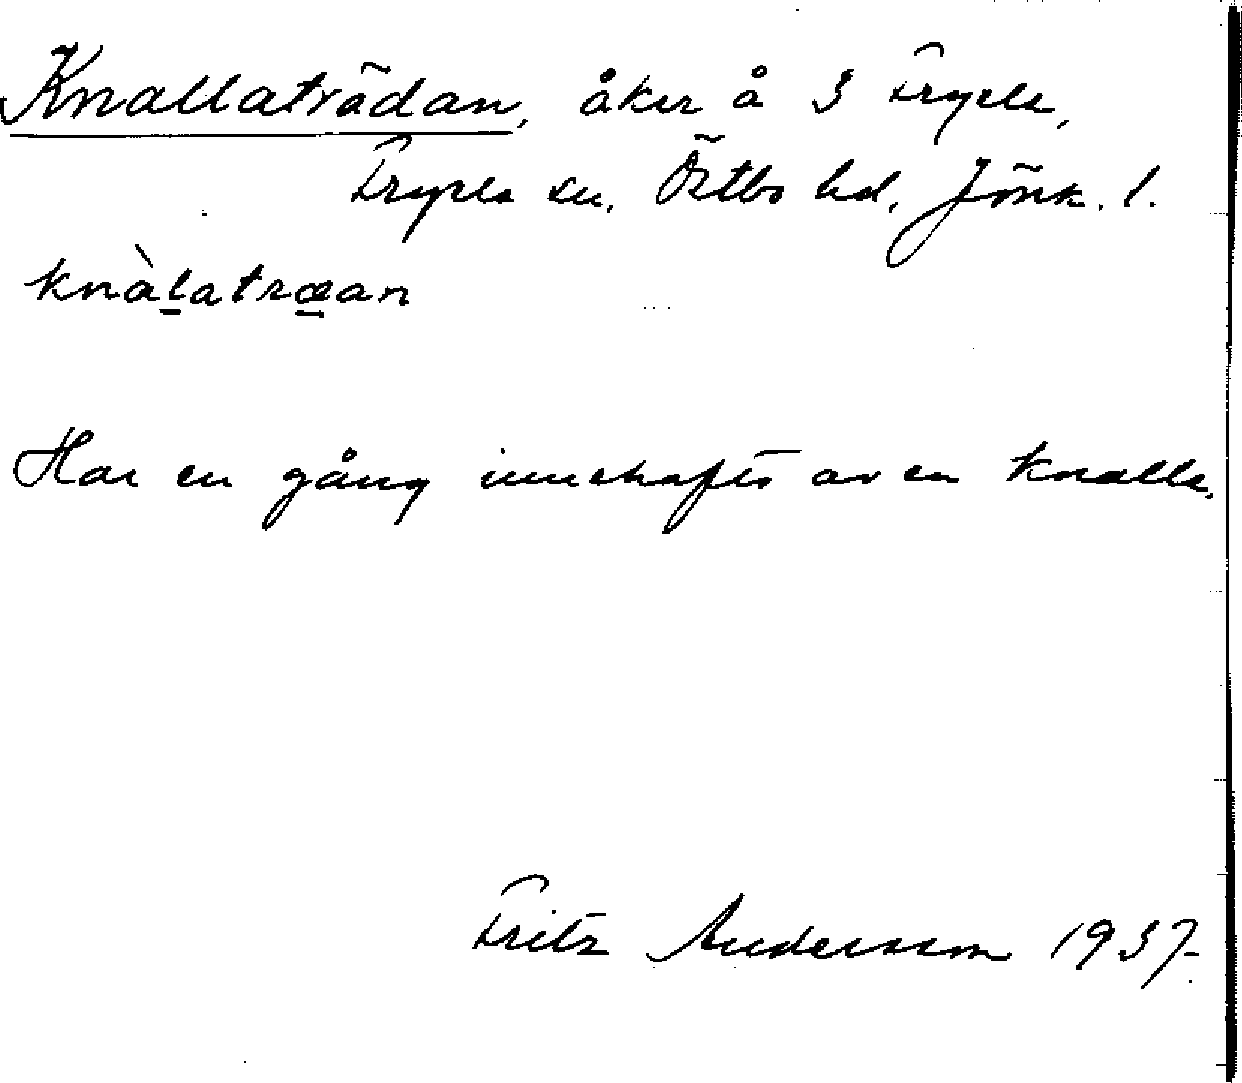 Knallaträdan, åker å S Fryele,
Fryele sn, Östbo hd, Jönk. l.
knàlatræan
Har en gång innehafts av en knalle.
Fritz Andersson 1937.